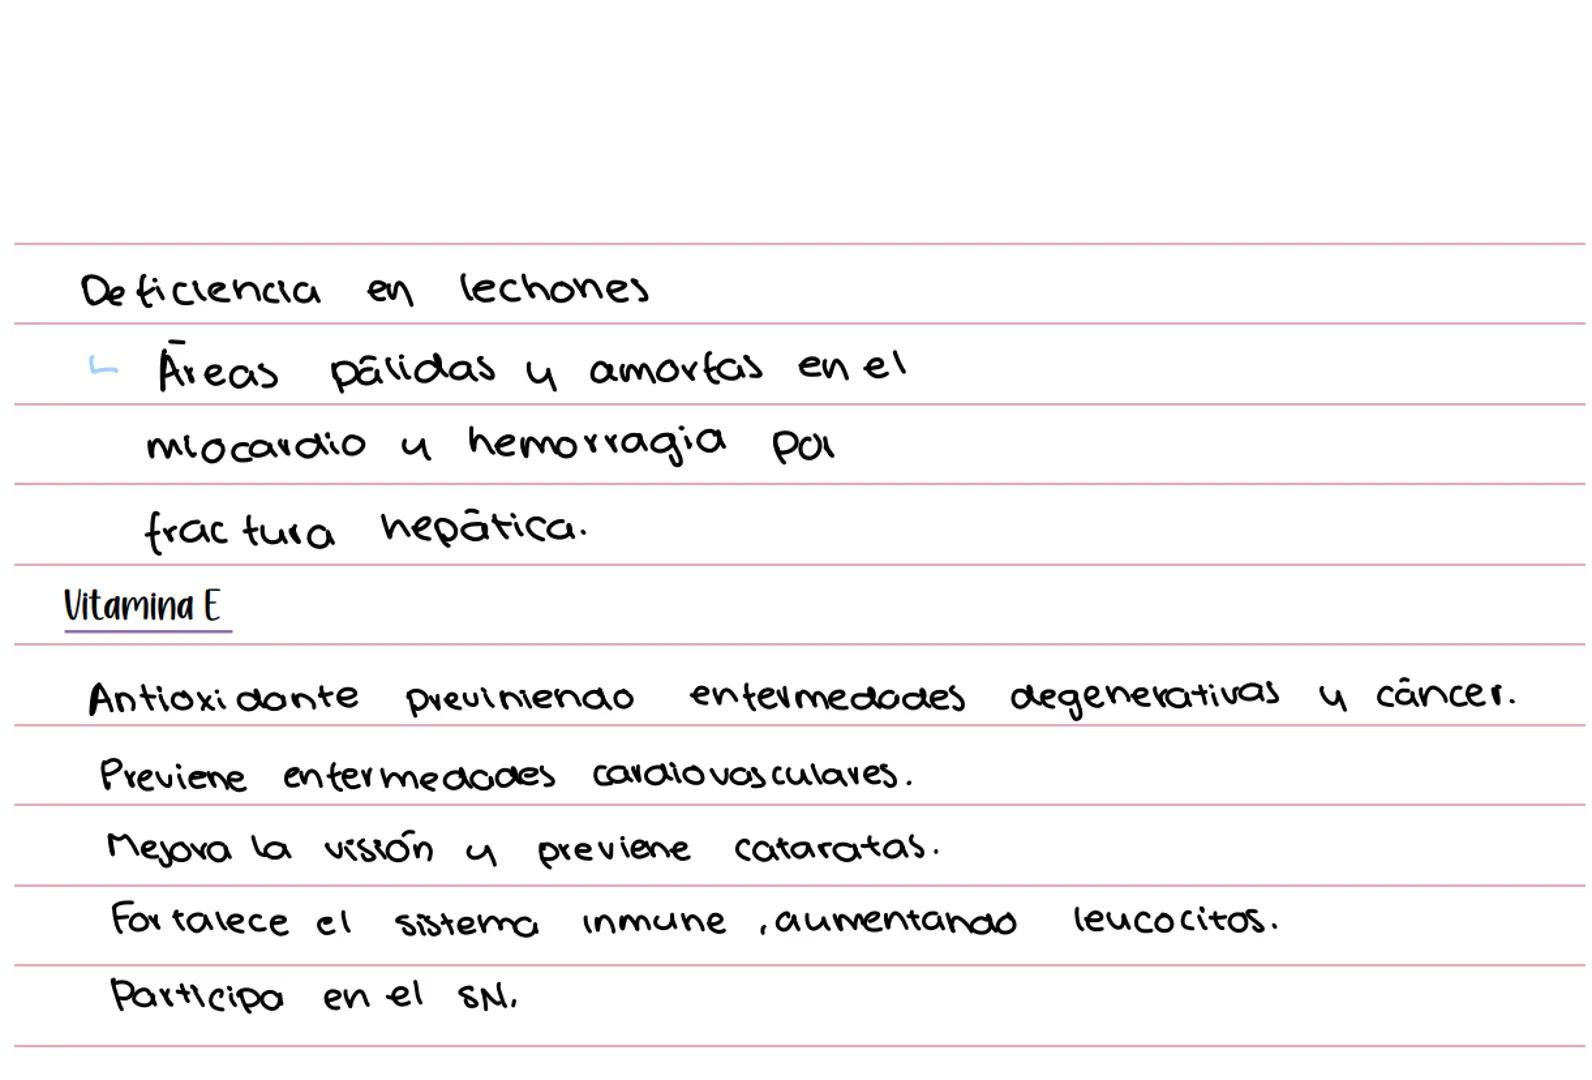 Deficiencia en lechones
Áreas pálidas y amorfas en el
miocardio y hemorragia por
fractura hepática.
Vitamina E
Antioxidante previniendo enfermedades degenerativas y cáncer.
Previene enfermedades cardiovasculares.
Mejora la visión y previene cataratas.
Fortalece el sistema inmune, aumentando leucocitos.
Participa en el SN.